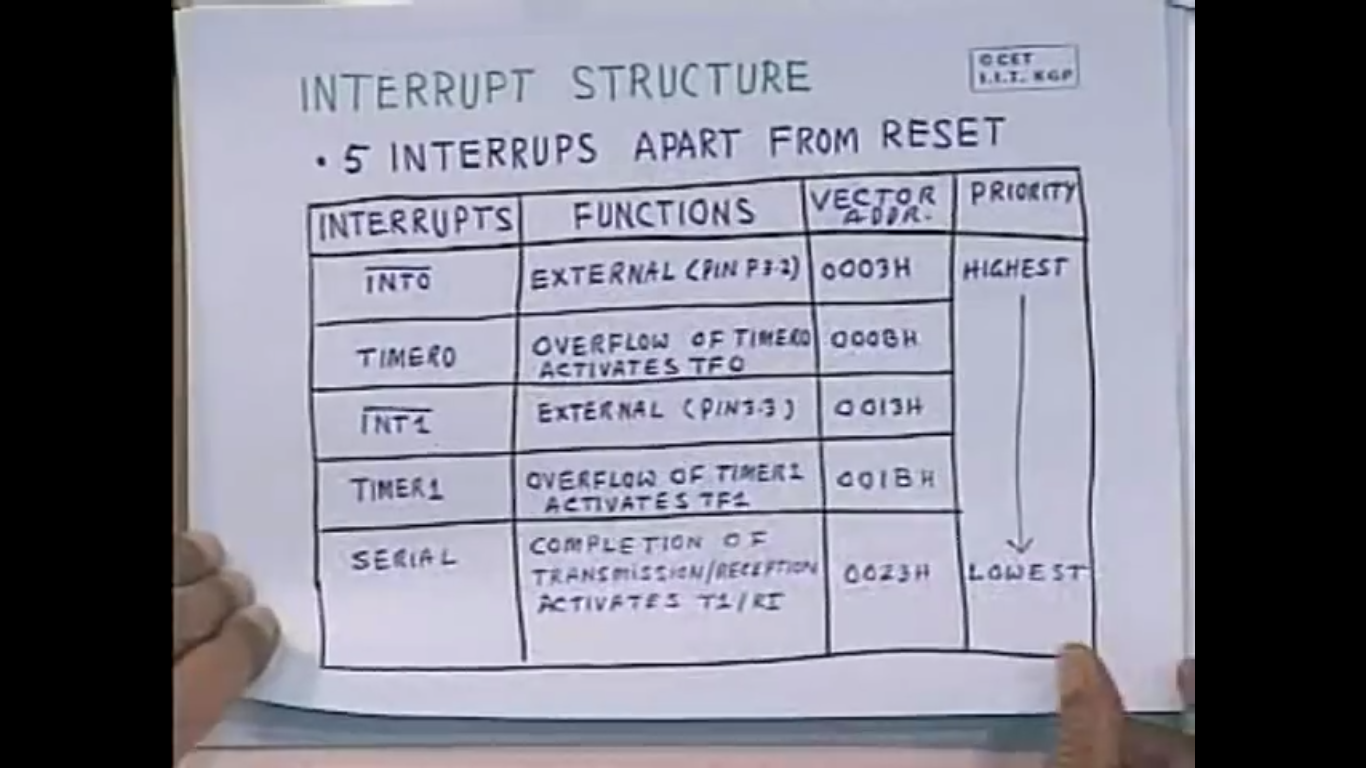 © CET
I.I.T. KGP
INTERRUPT STRUCTURE
• 5 INTERRUPS APART FROM RESET
INTERRUPTS FUNCTIONS VECTOR ADDR. PRIORITY
INT0 EXTERNAL (PIN P3.2) 0003H HIGHEST
TIMER0 OVERFLOW OF TIMER0 000BH
ACTIVATES TF0
INT1 EXTERNAL (PIN3.3) 0013H
TIMER1 OVERFLOW OF TIMER1 001BH
ACTIVATES TF1
SERIAL COMPLETION OF
TRANSMISSION/RECEPTION 0023H LOWEST
ACTIVATES TI/RI